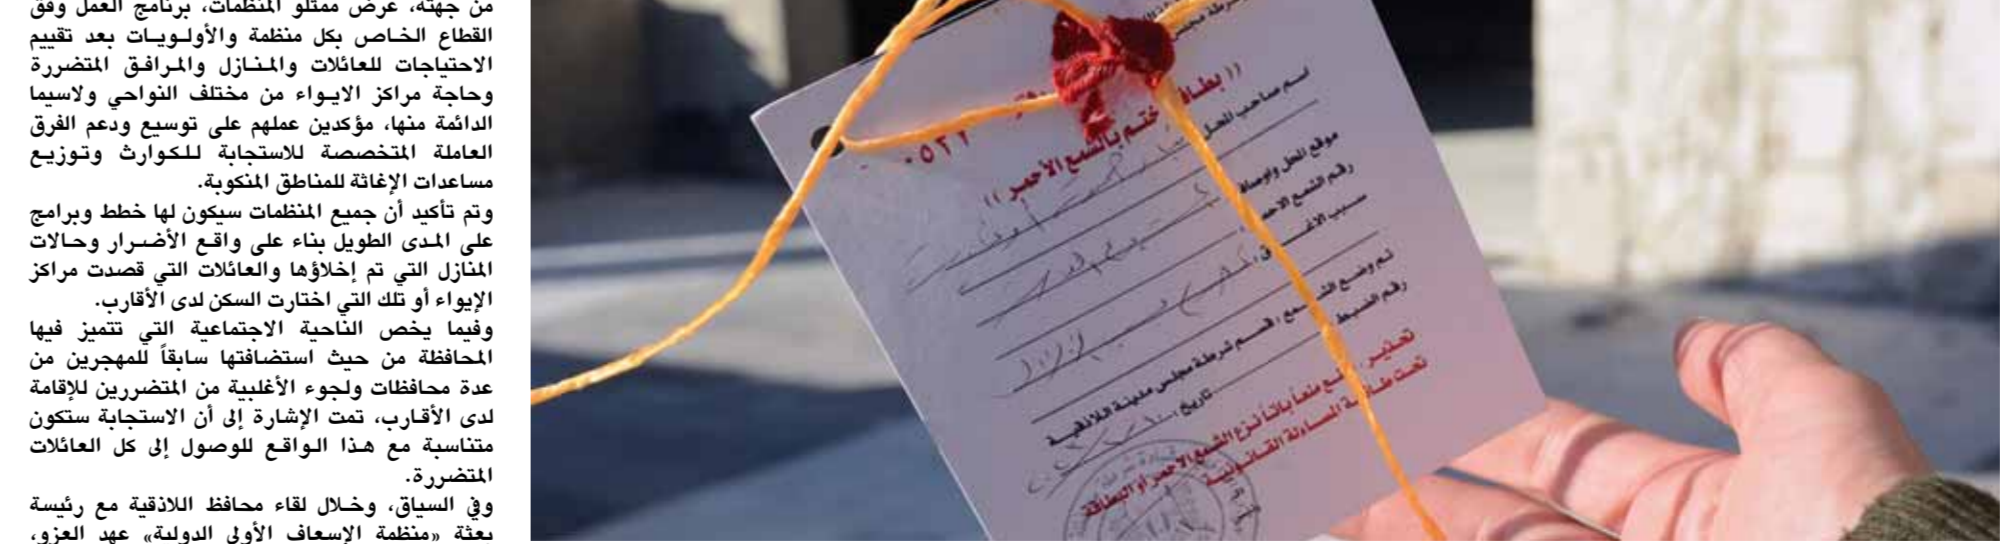 من جهته، عرض ممثلو المنظمات، برنامج العمل وفق
القطاع الخاص بكل منظمة والأولويات بعد تقييم
الاحتياجات للعائلات والمنازل والمرافق المتضررة
وحاجة مراكز الايواء من مختلف النواحي ولاسيما
الدائمة منها، مؤكدين عملهم على توسيع ودعم الفرق
العاملة المتخصصة للاستجابة للكوارث وتوزيع
مساعدات الإغاثة للمناطق المنكوبة.
وتم تأكيد أن جميع المنظمات سيكون لها خطط وبرامج
على المدى الطويل بناء على واقع الأضرار وحالات
المنازل التي تم إخلاؤها والعائلات التي قصدت مراكز
الإيواء أو تلك التي اختارت السكن لدى الأقارب.
وفيما يخص الناحية الاجتماعية التي تتميز فيها
المحافظة من حيث استضافتها سابقاً للمهجرين من
عدة محافظات ولجوء الأغلبية من المتضررين للإقامة
لدى الأقارب، تمت الإشارة إلى أن الاستجابة ستكون
متناسبة مع هذا الواقع للوصول إلى كل العائلات
المتضررة.
وفي السياق، وخلال لقاء محافظ اللاذقية مع رئيسة
بعثة «منظمة الإسعاف الأولي الدولية» عهد العزو،
٠٥٢٢
(( بطاقة ختم بالشمع الأحمر ))
اسم صاحب المحل
موقع المحل واوصافه
رقم الشمع الاحمر
سبب الاغلاق
تم وضع الشمع : قسم شرطة مجلس مدينة اللاذقية
رقم الضبط تاريخ
تحذير : يمنع منعاً باتاً نزع الشمع الاحمر او البطاقة
تحت طائلة المساءلة القانونية